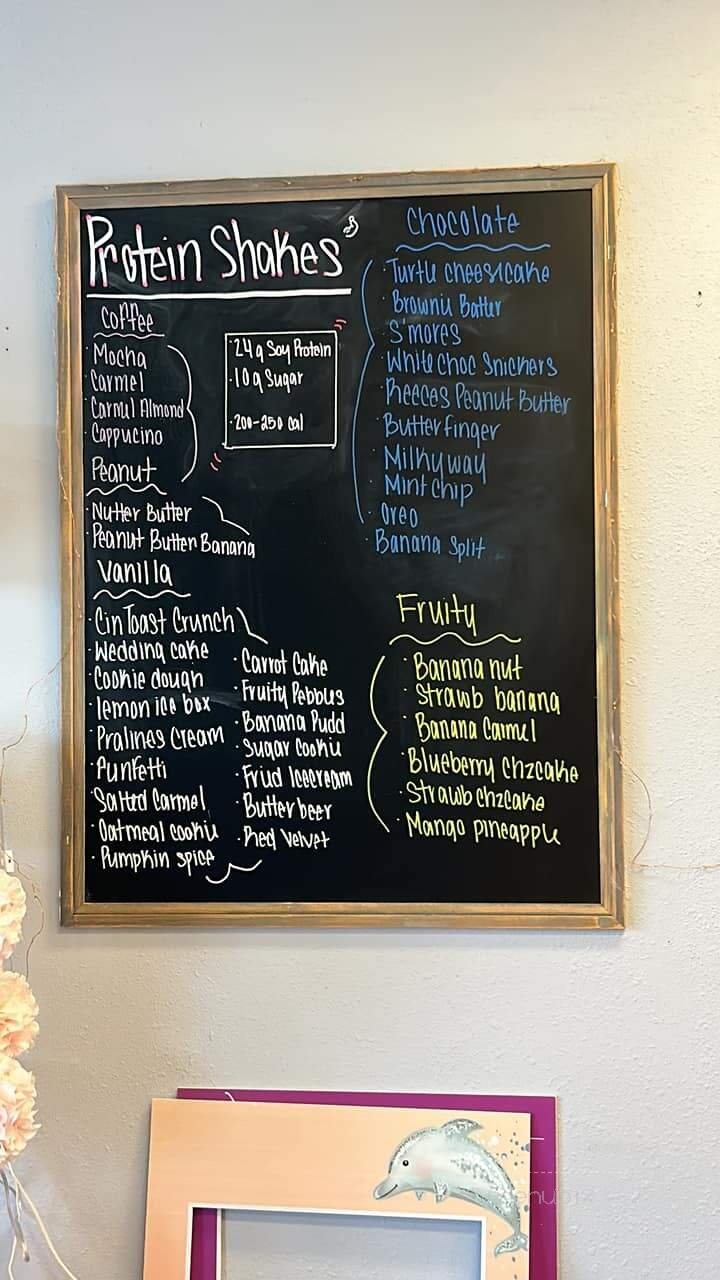 Protein Shakes
Coffee
· Mocha
· Carmel
· Carmel Almond
· Cappucino
· 24g Soy Protein
· 10g Sugar
· 200-250 cal
Peanut
· Nutter Butter
· Peanut Butter Banana
Vanilla
· Cin Toast Crunch
· Wedding cake
· Cookie dough
· lemon ice box
· Pralines Cream
· Funfetti
· Salted Carmel
· Oatmeal cookie
· Pumpkin spice
· Carrot Cake
· Fruity Pebbles
· Banana Pudd
· Sugar Cookie
· Fried Icecream
· Butter beer
· Red Velvet
Chocolate
· Turtle cheesecake
· Brownie Batter
· S'mores
· White Choc Snickers
· Reeces Peanut Butter
· Butterfinger
· Milkyway
· Mint Chip
· Oreo
· Banana Split
Fruity
· Banana nut
· Strawb banana
· Banana Carmel
· Blueberry Chzcake
· Strawb chzcake
· Mango pineapple